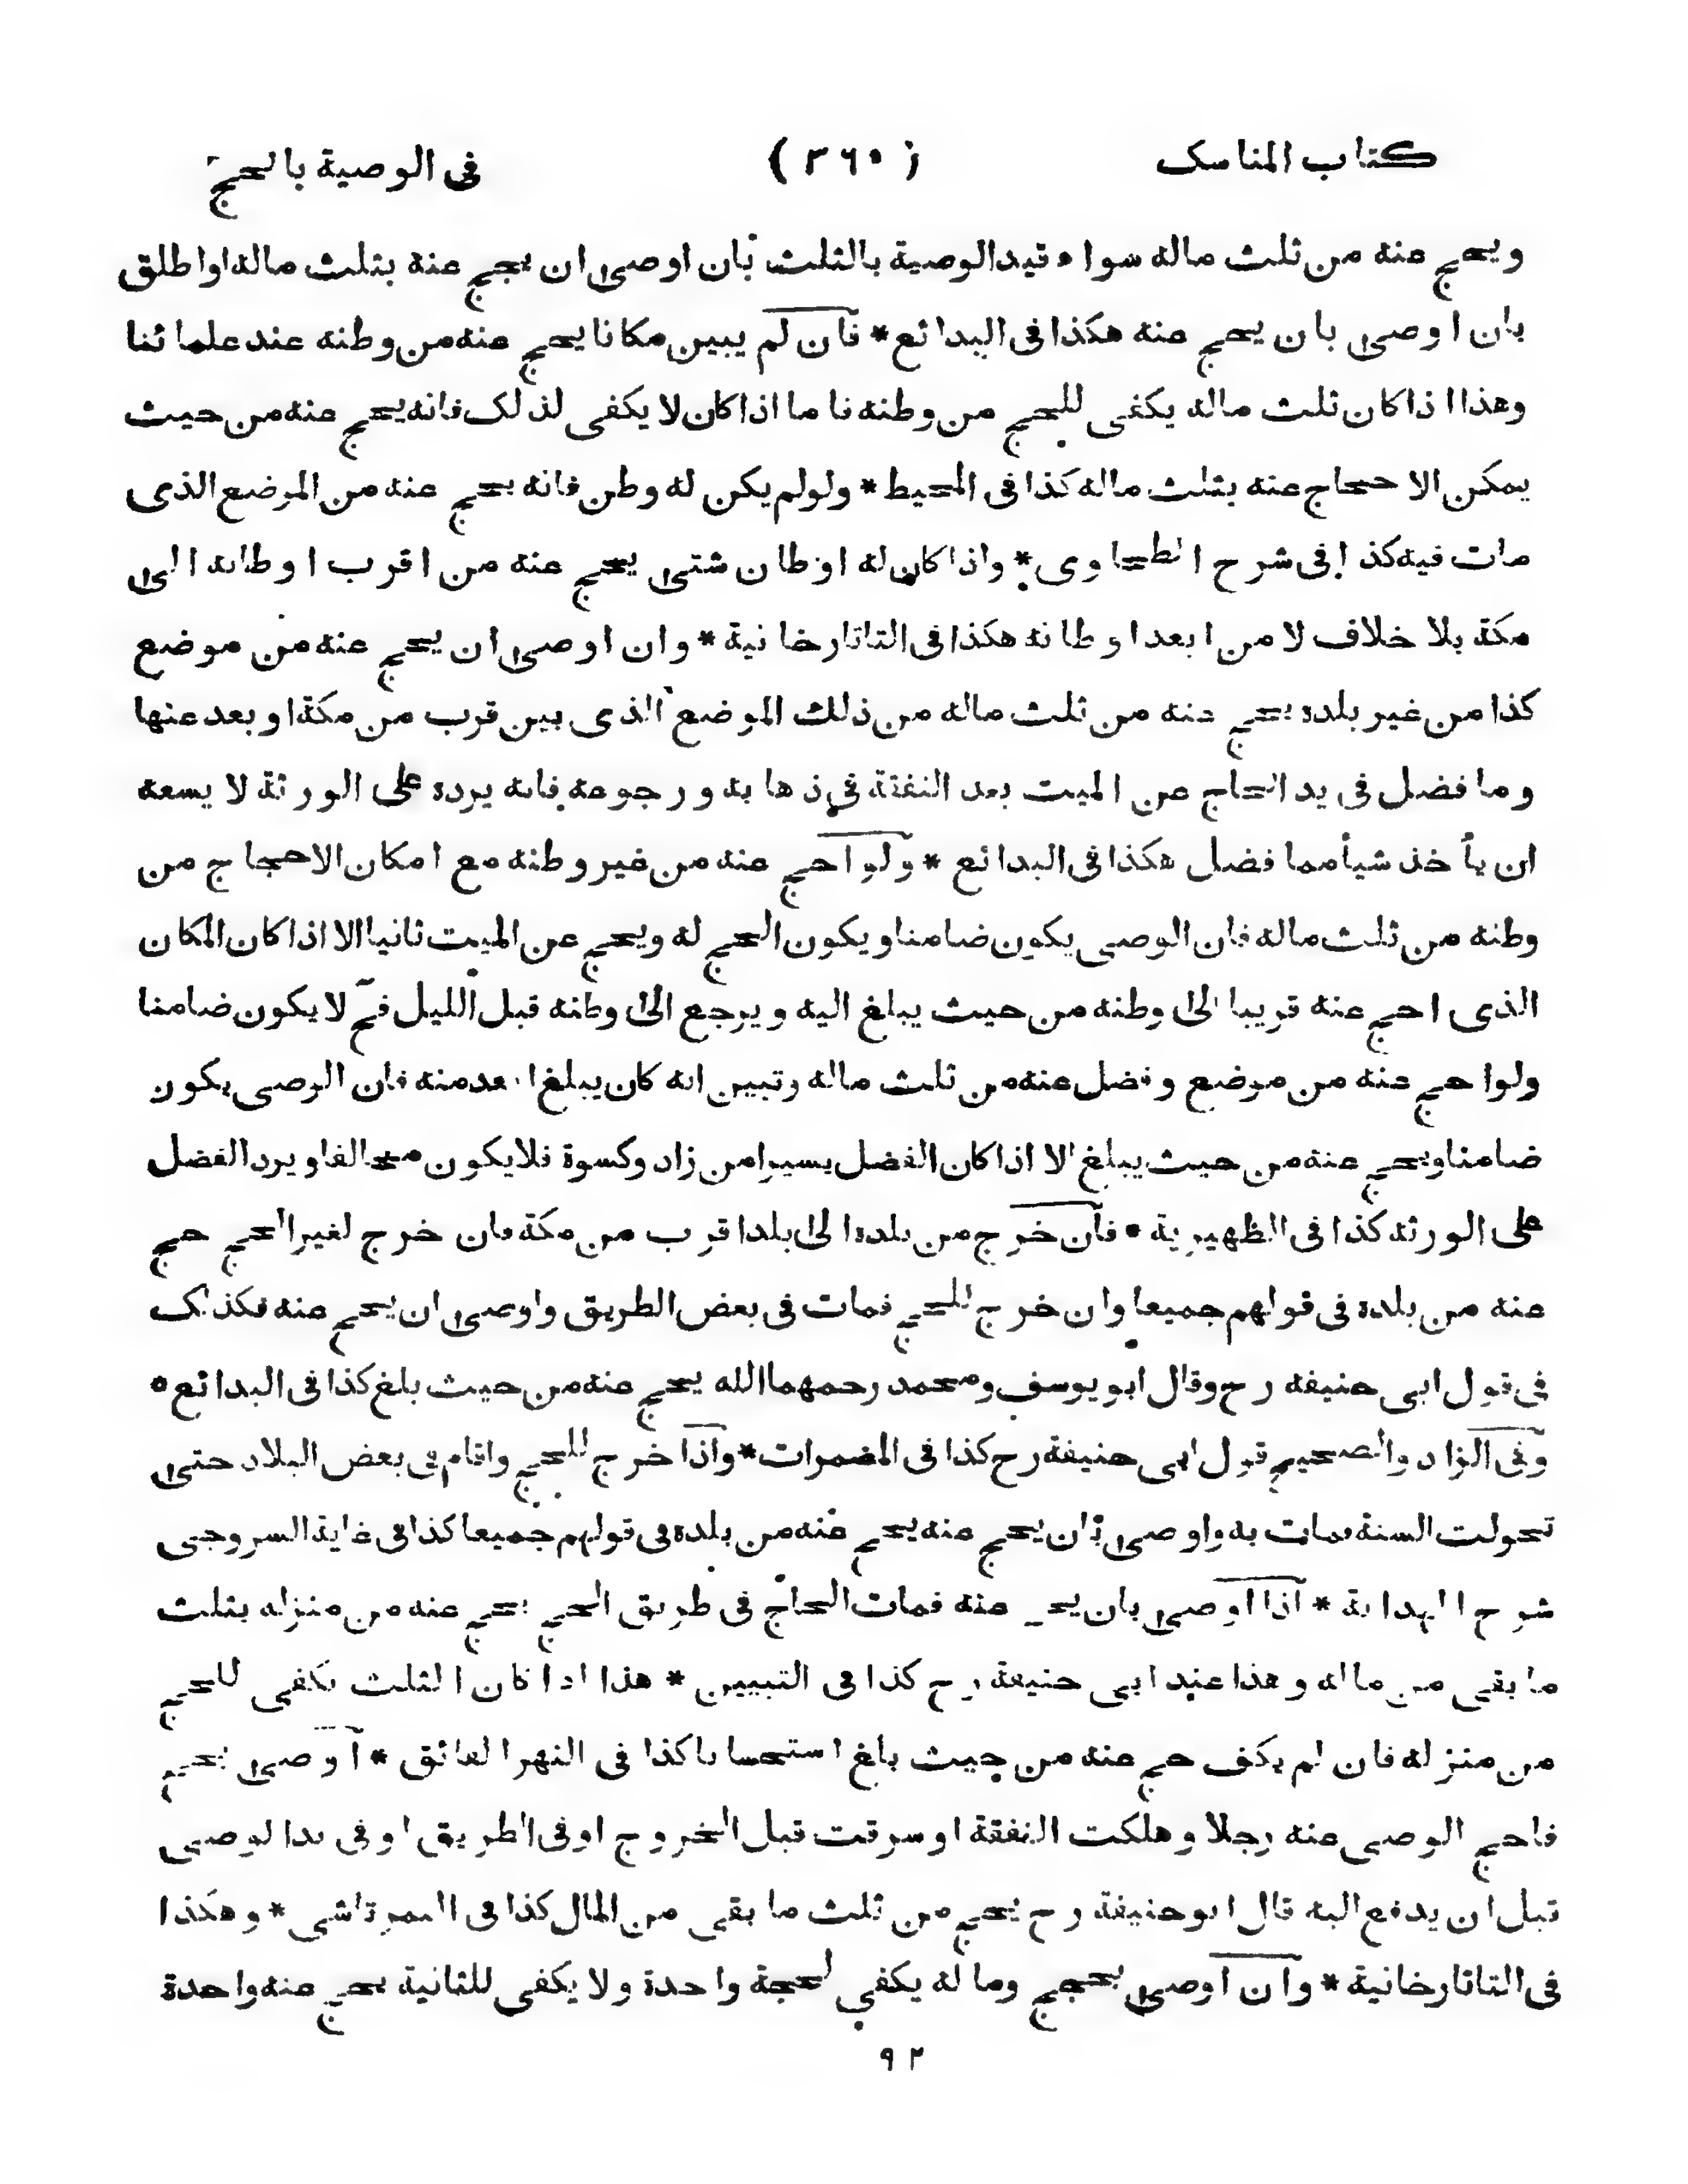 كتاب المناسك (٣٦٥) في الوصية بالحج
ويحج عنه من ثلث ماله سواء قيد الوصية بالثلث بان اوصى ان يحج عنه بثلث ماله او اطلق
بان اوصى بان يحج عنه هكذا في البدائع * فان لم يبين مكانا يحج عنه من وطنه عند علمائنا
وهذا اذا كان ثلث ماله يكفي للحج من وطنه فاما اذا كان لا يكفي لذلك فانه يحج عنه من حيث
يمكن الاحجاج عنه بثلث ماله كذا في المحيط * ولو لم يكن له وطن فانه يحج عنه من الموضع الذي
مات فيه كذا في شرح الطحاوى * واذا كان له اوطان شتى يحج عنه من اقرب اوطانه الى
مكة بلا خلاف لا من ابعد اوطانه هكذا في التاتارخانية * وان اوصى ان يحج عنه من موضع
كذا من غير بلده يحج عنه من ثلث ماله من ذلك الموضع الذي بين قرب من مكة او بعد عنها
وما فضل في يد الحاج عن الميت بعد النفقة في ذهابه ورجوعه فانه يرده على الورثة لا يسعه
ان يأخذ شيأ مما فضل هكذا في البدائع * ولو احج عنه من غير وطنه مع امكان الاحجاج من
وطنه من ثلث ماله فان الوصي يكون ضامنا ويكون الحج له ويحج عن الميت ثانيا الا اذا كان المكان
الذي احج عنه قريبا الى وطنه من حيث يبلغ اليه ويرجع الى وطنه قبل الليل فح لا يكون ضامنا
ولو احج عنه من موضع وفضل عنه من ثلث ماله وتبين انه كان يبلغ ابعد منه فان الوصي يكون
ضامنا ويحج عنه من حيث يبلغ الا اذا كان الفضل يسيرا من زاد وكسوة فلا يكون مخالفا ويرد الفضل
على الورثه كذا في الظهيرية * فان خرج من بلده الى بلد اقرب من مكة فان خرج لغير الحج حج
عنه من بلده في قولهم جميعا وان خرج للحج فمات في بعض الطريق واوصى ان يحج عنه فكذلك
في قول ابي حنيفه رح وقال ابو يوسف ومحمد رحمهما الله يحج عنه من حيث بلغ كذا في البدائع *
وفي الزاد والصحيح قول ابي حنيفة رح كذا في المضمرات * واذا خرج للحج واقام في بعض البلاد حتى
تحولت السنة فمات به واوصى بان يحج عنه يحج عنه من بلده في قولهم جميعا كذا في غاية السروجي
شرح الهداية * اذا اوصى بان يحج عنه فمات الحاج في طريق الحج يحج عنه من منزله بثلث
ما بقي من ماله وهذا عند ابي حنيفة رح كذا في التبيين * هذا اذا كان الثلث يكفي للحج
من منزله فان لم يكف حج عنه من حيث بلغ استحسانا كذا في النهر الفائق * اوصى بحج
فاحج الوصي عنه رجلا وهلكت النفقة او سرقت قبل الخروج او في الطريق او في يد الوصي
قبل ان يدفع اليه قال ابو حنيفة رح يحج من ثلث ما بقي من المال كذا في التمرتاشي * وهكذا
في التاتارخانية * وان اوصى بحجج وماله يكفي لحجة واحدة ولا يكفي للثانية يحج عنه واحدة
٩٢